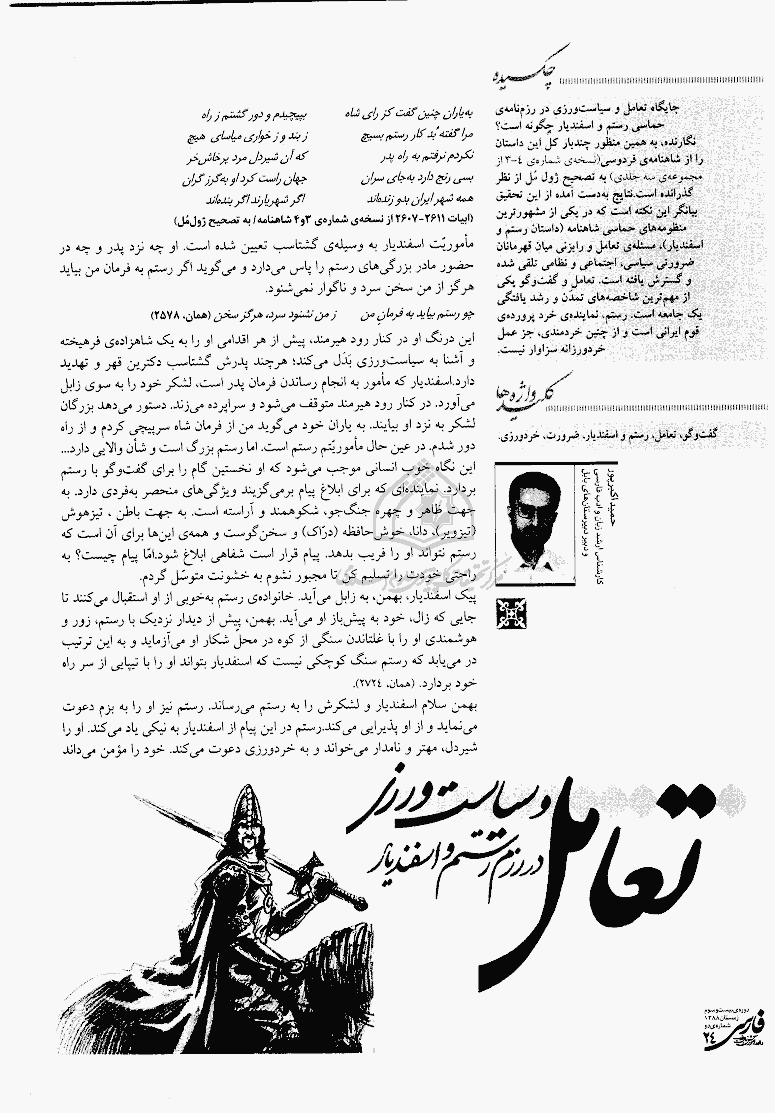 چکیده
جایگاه تعامل و سیاست‌ورزی در رزم‌نامه‌ی
حماسی رستم و اسفندیار چگونه است؟
نگارنده، به همین منظور چندبار کل این داستان
را از شاهنامه‌ی فردوسی(نسخه‌ی شماره‌ی ۴-۳ از
مجموعه‌ی سه جلدی) به تصحیح ژول مُل از نظر
گذرانده است.نتایج به‌دست آمده از این تحقیق
بیانگر این نکته است که در یکی از مشهورترین
منظومه‌های حماسی شاهنامه (داستان رستم و
اسفندیار)، مسئله‌ی تعامل و رایزنی میان قهرمانان
ضرورتی سیاسی، اجتماعی و نظامی تلقی شده
و گسترش یافته است. تعامل و گفت‌وگو یکی
از مهم‌ترین شاخصه‌های تمدّن و رشد یافتگی
یک جامعه است. رستم، نماینده‌ی خرد پرورده‌ی
قوم ایرانی است و از چنین خردمندی، جز عمل
خردورزانه سزاوار نیست.
کلیدواژه‌ها
گفت‌وگو، تعامل، رستم و اسفندیار، ضرورت، خردورزی.
حمید اکبرپور
کارشناسی ارشد زبان و ادب فارسی
و دبیر دبیرستان‌های بابل
به‌یاران چنین گفت کز رای شاه بپیچیدم و دور گشتم ز راه
مرا گفته بُد کار رستم بسیچ ز بند و ز خواری میاسای هیچ
نکردم نرفتم به راه پدر که آن شیردل مرد پرخاش‌خر
بسی رنج دارد به‌جای سران جهان راست کرد او به‌گرز گران
همه شهر ایران بدو زنده‌اند اگر شهریارند اگر بنده‌اند
(ابیات ۲۶۱۱-۲۶۰۷ از نسخه‌ی شماره‌ی ۳و۴ شاهنامه/ به تصحیح ژول‌مُل)
مأموریّت اسفندیار به وسیله‌ی گشتاسب تعیین شده است. او چه نزد پدر و چه در
حضور مادر بزرگی‌های رستم را پاس می‌دارد و می‌گوید اگر رستم به فرمان من بیاید
هرگز از من سخن سرد و ناگوار نمی‌شنود.
چو رستم بیاید به فرمان من ز من نشنود سرد، هرگز سخن (همان، ۲۵۷۸)
این درنگ او در کنار رود هیرمند، پیش از هر اقدامی او را به یک شاهزاده‌ی فرهیخته
و آشنا به سیاست‌ورزی بَدَل می‌کند؛ هرچند پدرش گشتاسب دکترین قهر و تهدید
دارد.اسفندیار که مأمور به انجام رساندن فرمان پدر است، لشکر خود را به سوی زابل
می‌آورد. در کنار رود هیرمند متوقف می‌شود و سراپرده می‌زند. دستور می‌دهد بزرگان
لشکر به نزد او بیایند. به یاران خود می‌گوید من از فرمان شاه سرپیچی کردم و از راه
دور شدم. در عین حال مأموریّتم رستم است. اما رستم بزرگ است و شأن والایی دارد...
این نگاه خوب انسانی موجب می‌شود که او نخستین گام را برای گفت‌وگو با رستم
بردارد. نماینده‌ای که برای ابلاغ پیام برمی‌گزیند ویژگی‌های منحصر به‌فردی دارد. به
جهت ظاهر و چهره جنگ‌جو، شکوهمند و آراسته است. به جهت باطن ، تیزهوش
(تیزویر)، دانا، خوش‌حافظه (درّاک) و سخن‌گوست و همه‌ی این‌ها برای آن است که
رستم نتواند او را فریب بدهد. پیام قرار است شفاهی ابلاغ شود.امّا پیام چیست؟ به
راحتی خودت را تسلیم کن تا مجبور نشوم به خشونت متوسّل گردم.
پیک اسفندیار، بهمن، به زابل می‌آید. خانواده‌ی رستم به‌خوبی از او استقبال می‌کنند تا
جایی که زال، خود به پیش‌باز او می‌آید. بهمن، پیش از دیدار نزدیک با رستم، زور و
هوشمندی او را با غلتاندن سنگی از کوه در محل شکار او می‌آزماید و به این ترتیب
در می‌یابد که رستم سنگ کوچکی نیست که اسفندیار بتواند او را با تیپایی از سر راه
خود بردارد. (همان، ۲۷۲۴).
بهمن سلام اسفندیار و لشکرش را به رستم می‌رساند. رستم نیز او را به بزم دعوت
می‌نماید و از او پذیرایی می‌کند.رستم در این پیام از اسفندیار به نیکی یاد می‌کند. او را
شیردل، مهتر و نامدار می‌خواند و به خردورزی دعوت می‌کند. خود را مؤمن می‌داند
تعامل و سیاست ورزی
در رزم رستم و اسفندیار
دوره‌ی بیست و سوم
زمستان ۱۳۸۸
شماره‌ی دو
فارسی
۲۴